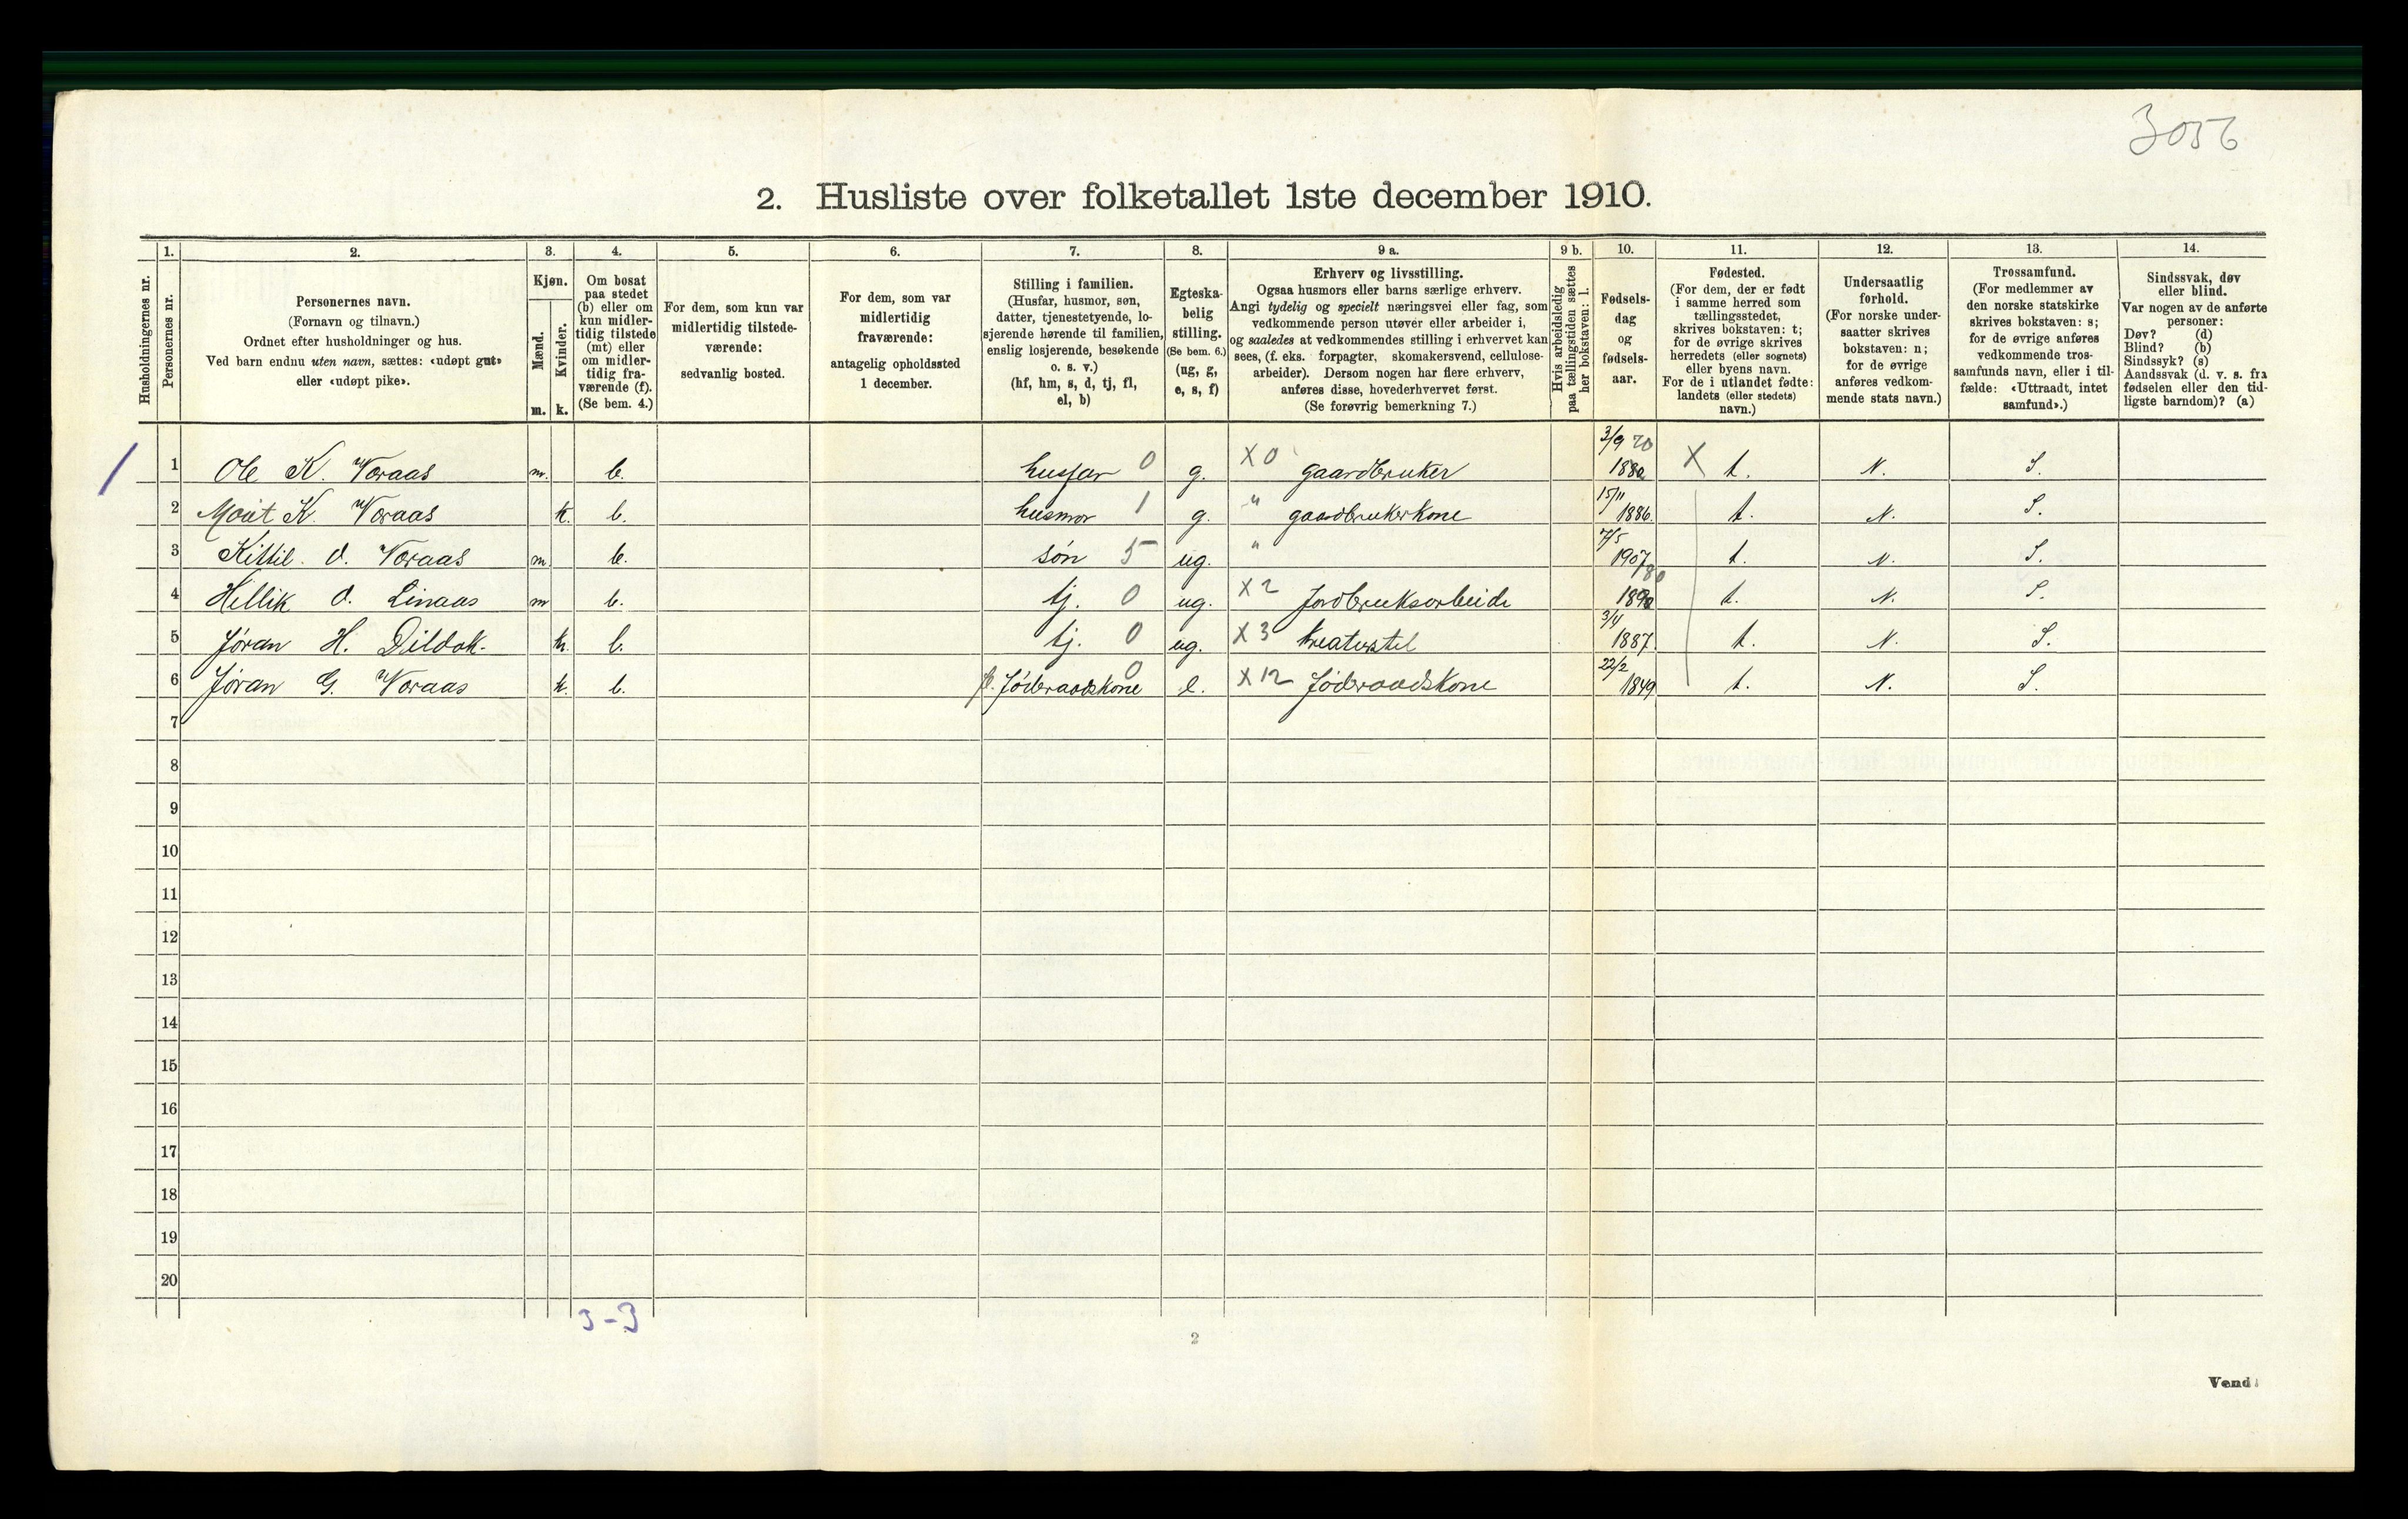 3056
2. Husliste over folketallet 1ste december 1910.
Husholdningernes nr.
1.
Personernes nr.
2.
Personernes navn.
(Fornavn og tilnavn.)
Ordnet efter husholdninger og hus.
Ved barn endnu uten navn, sættes: «udøpt gut»
eller «udøpt pike».
3.
Kjøn.
Mænd.
Kvinder.
m. k.
4.
Om bosat
paa stedet
(b) eller om
kun midler-
tidig tilstede
(mt) eller
om midler-
tidig fra-
værende (f).
(Se bem. 4.)
5.
For dem, som kun var
midlertidig tilstede-
værende:
sedvanlig bosted.
6.
For dem, som var
midlertidig
fraværende:
antagelig opholdssted
1 december.
7.
Stilling i familien.
(Husfar, husmor, søn,
datter, tjenestetyende, lo-
sjerende hørende til familien,
enslig losjerende, besøkende
o. s. v.)
(hf, hm, s, d, tj, fl,
el, b)
8.
Egteska-
belig
stilling.
(Se bem. 6.)
(ug, g,
e, s, f)
9 a.
Erhverv og livsstilling.
Ogsaa husmors eller barns særlige erhverv.
Angi tydelig og specielt næringsvei eller fag, som
vedkommende person utøver eller arbeider i,
og saaledes at vedkommendes stilling i erhvervet kan
sees, (f. eks. forpagter, skomakersvend, cellulose-
arbeider). Dersom nogen har flere erhverv,
anføres disse, hovederhvervet først.
(Se forøvrig bemerkning 7.)
9 b.
Hvis arbeidsledig
paa tællingstiden sættes
her bokstaven: l.
10.
Fødsels-
dag
og
fødsels-
aar.
11.
Fødested.
(For dem, der er født
i samme herred som
tællingsstedet,
skrives bokstaven: t;
for de øvrige skrives
herredets (eller sognets)
eller byens navn.
For de i utlandet fødte:
landets (eller stedets)
navn.)
12.
Undersaatlig
forhold.
(For norske under-
saatter skrives
bokstaven: n;
for de øvrige
anføres vedkom-
mende stats navn.)
13.
Trossamfund.
(For medlemmer av
den norske statskirke
skrives bokstaven: s;
for de øvrige anføres
vedkommende tros-
samfunds navn, eller i til-
fælde: «Uttraadt, intet
samfund».)
14.
Sindssvak, døv
eller blind.
Var nogen av de anførte
personer:
Døv? (d)
Blind? (b)
Sindssyk? (s)
Aandssvak (d. v. s. fra
fødselen eller den tid-
ligste barndom)? (a)
1 Ole K. Voraas m. b. husfar 0 g. X 0 gaardbruker 3/9 X t. N. S.
2 K. Voraas k. b. husmor 1 g. " gaardbrukerkone 15/11 1886. t. N. S.
3 Kittil. O. Voraas m b. søn 5 ug. " 7/5 1907 t. N. S.
4 Hellik O. Linaas m b. tj. 0 ug. X 2 Jordbruksarbeide t. N. S.
5 Jøran H. k. b. tj. 0 ug. X 3 kreaturstel 3/4 1887. t. N. S.
6 Jøran G. Voraas k. b. Føderaadskone 0 e. X 12 Føderaadskone 22/2 1849 t. N. S.
7
8
9
10
11
12
13
14
15
16
17
18
19
20
3-3
2
Vend!